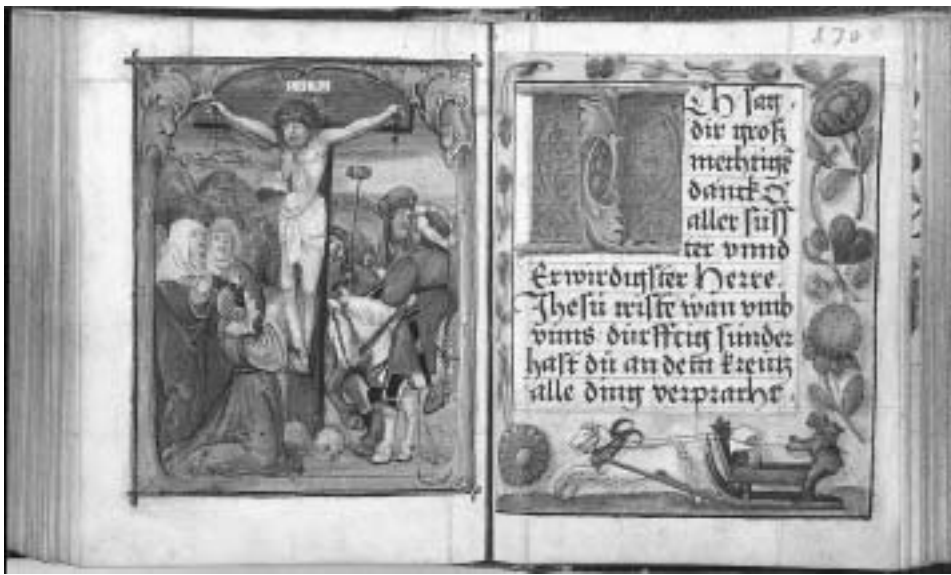 870
Ch sag
dir groß
mechtige
danck O
aller süss
ter vnnd
Erwirdigster Herre
Jhesü criste wan vmb
vnns dürfftig sünder
hast dü an dem kreütz
alle ding verpracht.